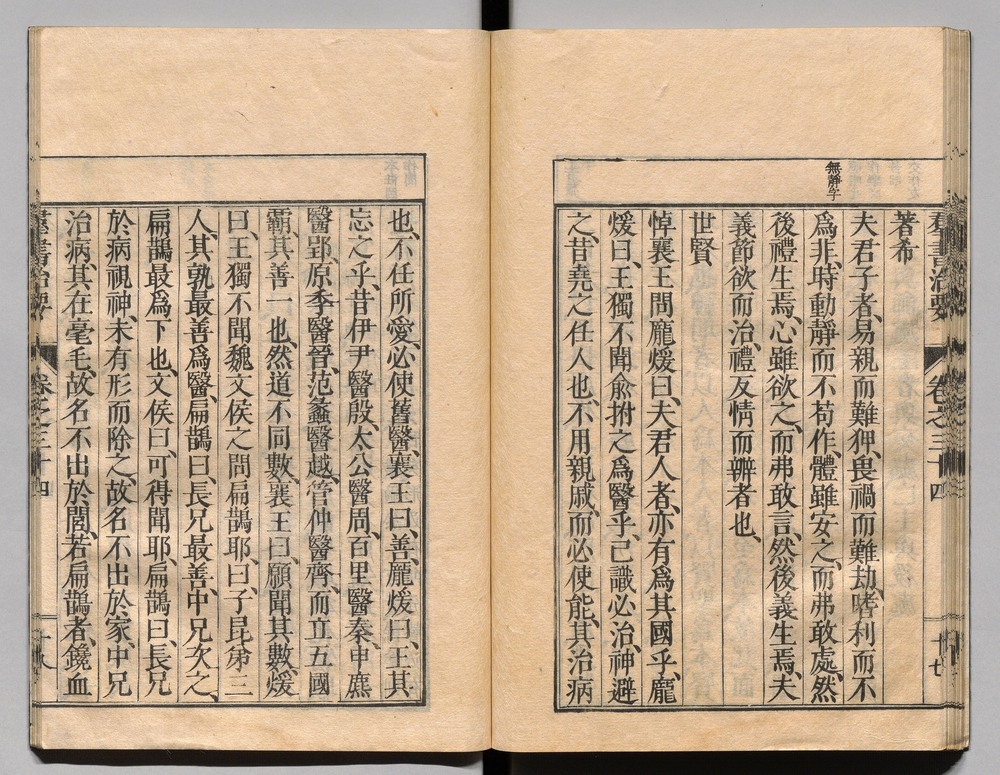 羣書治要 卷之三十四 十七
著希
無靜字
夫君子者、易親而難狎、畏禍而難劫、嗜利而不
爲非、時動靜而不苟作、體雖安之、而弗敢處、然
後禮生焉、心雖欲之、而弗敢言、然後義生焉、夫
義節欲而治、禮友情而辨者也、
世賢
悼襄王問龐煖曰、夫君人者、亦有爲其國乎、龐
煖曰、王獨不聞俞拊之爲醫乎、已識必治、神避
之、昔堯之任人也、不用親戚、而必使能、其治病
也、不任所愛、必使舊醫、襄王曰、善、龐煖曰、王其
忘之乎、昔伊尹醫殷、太公醫周、百里醫秦、申麃
醫郢、原季醫晉、范蠡醫越、管仲醫齊、而立五國
霸、其善一也、然道不同數、襄王曰、願聞其數、煖
曰、王獨不聞魏文侯之問扁鵲耶、曰、子昆弟三
人、其孰最善爲醫、扁鵲曰、長兄最善、中兄次之、
扁鵲最爲下也、文侯曰、可得聞耶、扁鵲曰、長兄
於病視神、未有形而除之、故名不出於家、中兄
治病、其在毫毛、故名不出於閭、若扁鵲者、鑱血
羣書治要 卷之三十四 十八